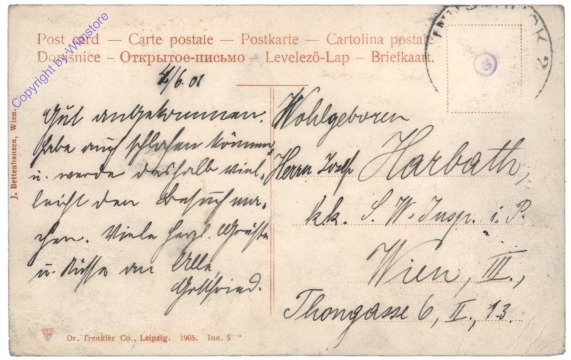 Post card — Carte postale — Postkarte — Cartolina postale
Dopisnice — Открытое-письмо — Levelező-Lap — Briefkaart.
Copyright by Winstore
J. Bettenhausen, Wien.
INNSBRUCK 2
/6. 01
Gut angekommen.
Habe auch schlafen können
u. werde deshalb viel-
leicht den Besuch ma-
chen. Viele herzl. Grüße
u. Küsse an Alle
Gottfried.
Wohlgeboren
Herrn Josef Harbath,
k.k. S. W. Insp. i. P.
Wien, III.,
Thongasse 6, II., 13.
Dr. Trenkler Co., Leipzig. 1905. Inn. 5